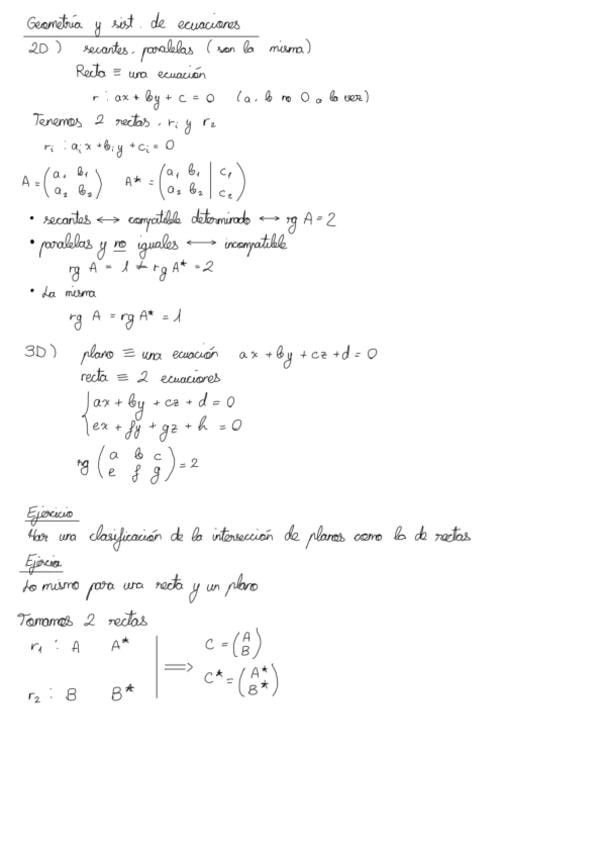 Geometría y sist. de ecuaciones
2D) secantes, paralelas (son la misma)
Recta ≡ una ecuación
r : ax + by + c = 0 (a, b no 0 a la vez)
Tenemos 2 rectas, r₁ y r₂
rᵢ : aᵢx + bᵢy + cᵢ = 0
A = (a₁ b₁ / a₂ b₂) A* = (a₁ b₁ | c₁ / a₂ b₂ | c₂)
• secantes ↔ compatible determinado ↔ rg A = 2
• paralelas y no iguales ↔ incompatible
rg A = 1 ≠ rg A* = 2
• La misma
rg A = rg A* = 1
3D) plano ≡ una ecuación ax + by + cz + d = 0
recta ≡ 2 ecuaciones
{ax + by + cz + d = 0
{ex + fy + gz + h = 0
rg (a b c / e f g) = 2
Ejercicio
Har una clasificación de la intersección de planos como la de rectas
Ejercio
Lo mismo para una recta y un plano
Tomamos 2 rectas
r₁ : A A* ⟹ C = (A / B)
r₂ : B B* C* = (A* / B*)